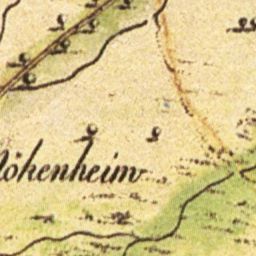 ökenheim